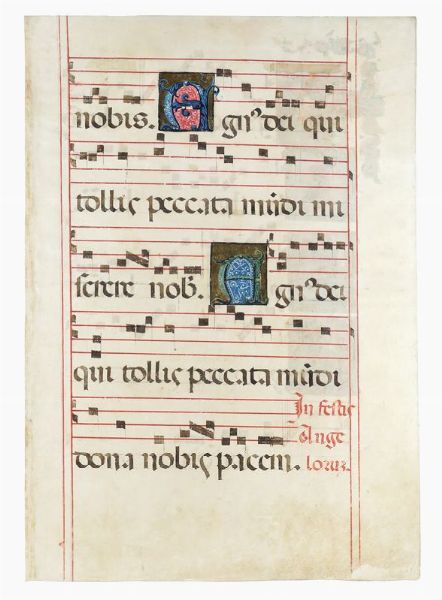 nobis. Agnꝰ dei qui
tollis peccata mūdi mi
serere nob̄. Agnꝰ dei
qui tollis peccata mūdi
In festis
dona nobis pacem. Ange
loruꝫ.